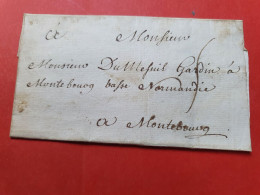 A Monsieur
Monsieur Du Mesnil Gardin à
Montebourg basse Normandie
a Montebourg